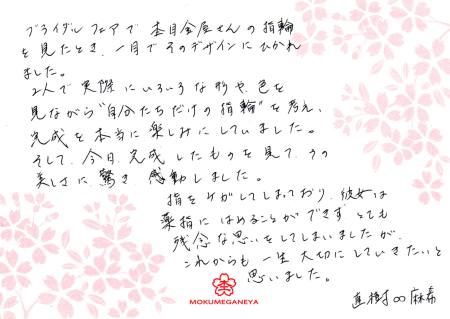 ブライダルフェアで杢目金屋さんの指輪
を見たとき、一目でそのデザインにひかれ
ました。
2人で実際にいろいろな形や、色を
見ながら“自分たちだけの指輪”を考え、
完成を本当に楽しみにしていました。
そして、今日、完成したものを見て、その
美しさに、驚き、感動しました。
指をケガしてしまっており、彼女は
薬指にはめることができず、とても
残念な思いをしてしまいましたが、
これからも一生大切にしていきたいと
思いました。
直樹∞麻希
MOKUMEGANEYA